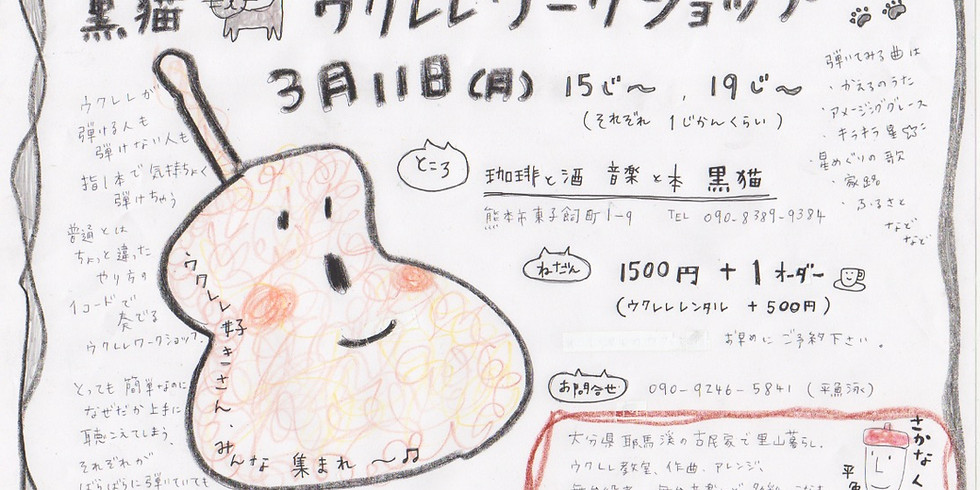 黒猫 ウクレレワークショップ
3月11日(月) 15じ〜、19じ〜
(それぞれ 1じかんくらい)
ところ
珈琲と酒 音楽と本 黒猫
熊本市東子飼町1-9 TEL 090-8389-9384
ねだん
1500円 + 1オーダー
(ウクレレレンタル +500円)
お早めにご予約下さい。
お問合せ 090-9246-5841 (平魚泳)
弾いてみる曲は
・かえるのうた
・アメージンググレース
・キラキラ星
・星めぐりの歌
・家路
・ふるさと
などなど
ウクレレが
弾ける人も
弾けない人も
指1本で気持ちよく
弾けちゃう
普通とは
ちょっと違った
やり方の
1コードで
奏でる
ウクレレワークショップ。
とっても簡単なのに
なぜだか上手に
聴こえてしまう。
それぞれが
ばらばらに弾いていても
ウクレレ好きさん、みんな 集まれ〜♫
大分県耶馬溪の古民家で里山暮らし。
ウクレレ教室、作曲、アレンジ、
さかな人
平魚